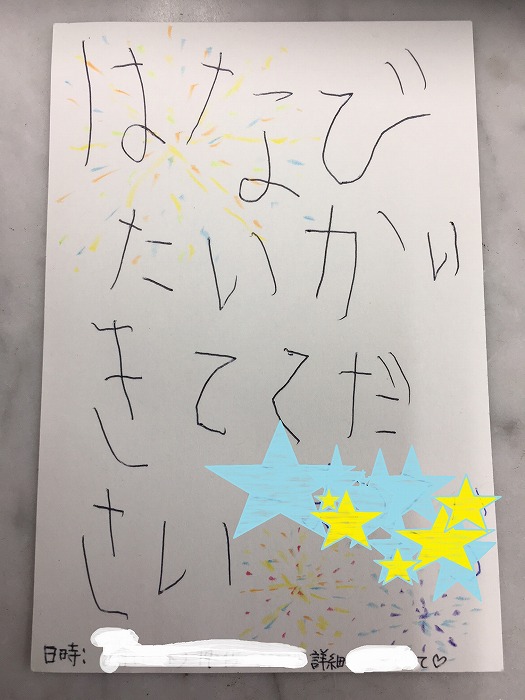 はなび
たいかい
きててだ
さい
日時: 詳細 て♡